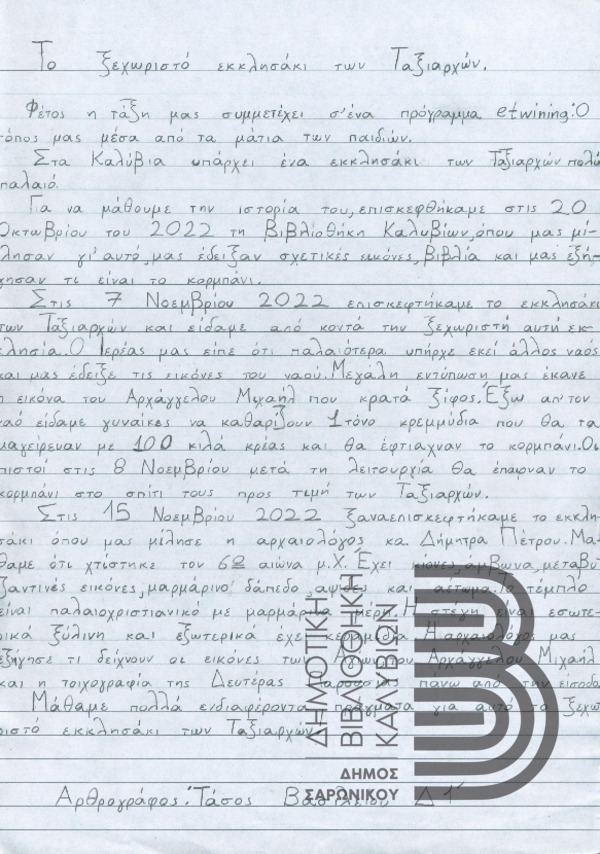 Το ξεχωριστό εκκλησάκι των Ταξιαρχών.
Φέτος η τάξη μας συμμετέχει σ'ένα πρόγραμμα etwining:Ο
τόπος μας μέσα από τα μάτια των παιδιών.
Στα Καλύβια υπάρχει ένα εκκλησάκι των Ταξιαρχών πολύ
παλαιό.
Για να μάθουμε την ιστορία του, επισκεφθήκαμε στις 20
Οκτωβρίου του 2022 τη Βιβλιοθήκη Καλυβίων, όπου μας μί-
λησαν γι'αυτό, μας έδειξαν σχετικές εικόνες, βιβλία και μας εξή-
γησαν τι είναι το κορμπάνι.
Στις 7 Νοεμβρίου 2022 επισκεφτήκαμε το εκκλησάκι
των Ταξιαρχών και είδαμε από κοντά την ξεχωριστή αυτή εκ-
κλησία. Ο Ιερέας μας είπε ότι παλαιότερα υπήρχε εκεί άλλος ναός
και μας έδειξε τις εικόνες του ναού. Μεγάλη εντύπωση μας έκανε
η εικόνα του Αρχάγγελου Μιχαήλ που κρατά ξίφος. Έξω απ'τον
ναό είδαμε γυναίκες να καθαρίζουν 1 τόνο κρεμμύδια που θα τα
μαγείρευαν με 100 κιλά κρέας και θα έφτιαχναν το κορμπάνι. Οι
πιστοί στις 8 Νοεμβρίου μετά τη λειτουργία θα έπαιρναν το
κορμπάνι στο σπίτι τους προς τιμή των Ταξιαρχών.
Στις 15 Νοεμβρίου 2022 ξαναεπισκεφτήκαμε το εκκλη-
σάκι όπου μας μίλησε η αρχαιολόγος κα. Δήμητρα Πέτρου. Μά-
θαμε ότι χτίστηκε τον 6ο αιώνα μ.Χ. Έχει κίονες, άμβωνα, μεταβυ-
ζαντινές εικόνες, μαρμάρινο δάπεδο, αψίδες και αέτωμα. Το τέμπλο
είναι παλαιοχριστιανικό με μαρμάρινα μέρη. Η στέγη είναι εσωτε-
ρικά ξύλινη και εξωτερικά έχει κεραμίδια. Η αρχαιολόγος μας
εξήγησε τι δείχνουν οι εικόνες των Αρχάγγελου Μιχαήλ
και η τοιχογραφία της Δευτέρας Παρουσίας πάνω από την είσοδο.
Μάθαμε πολλά ενδιαφέροντα πράγματα για αυτό το ξεχω-
ριστό εκκλησάκι των Ταξιαρχών.
Αρθρογράφος: Τάσος Βασιλείου Δ1
ΔΗΜΟΤΙΚΗ
ΒΙΒΛΙΟΘΗΚΗ
ΚΑΛΥΒΙΩΝ
ΔΗΜΟΣ
ΣΑΡΩΝΙΚΟΥ